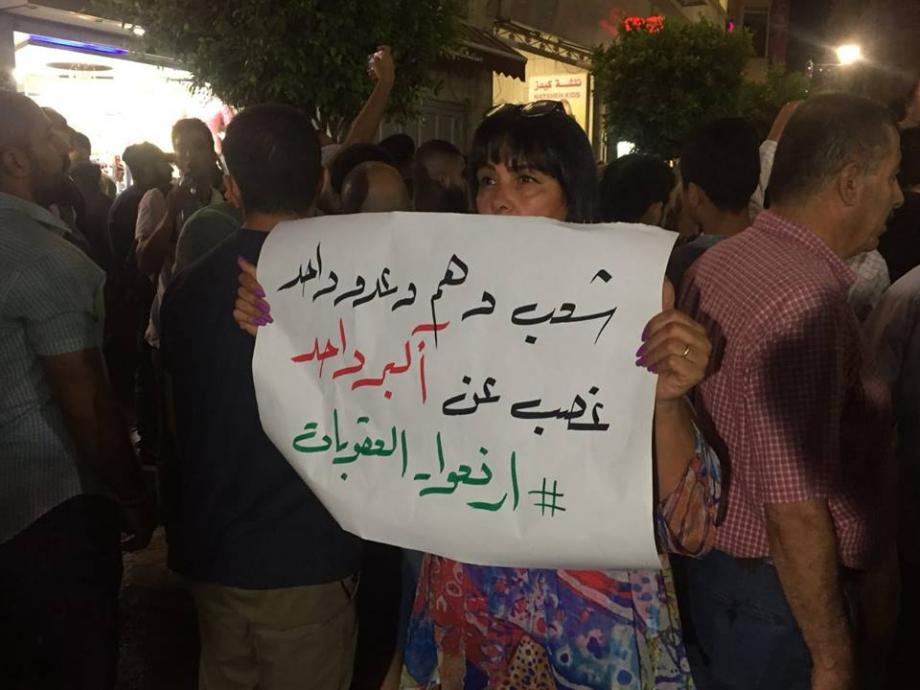 نتشة كيدز
NATSHEH KIDS
شعب وهم وعدو واحد
غصب عن أكبر واحد
# ارفعوا_العقوبات